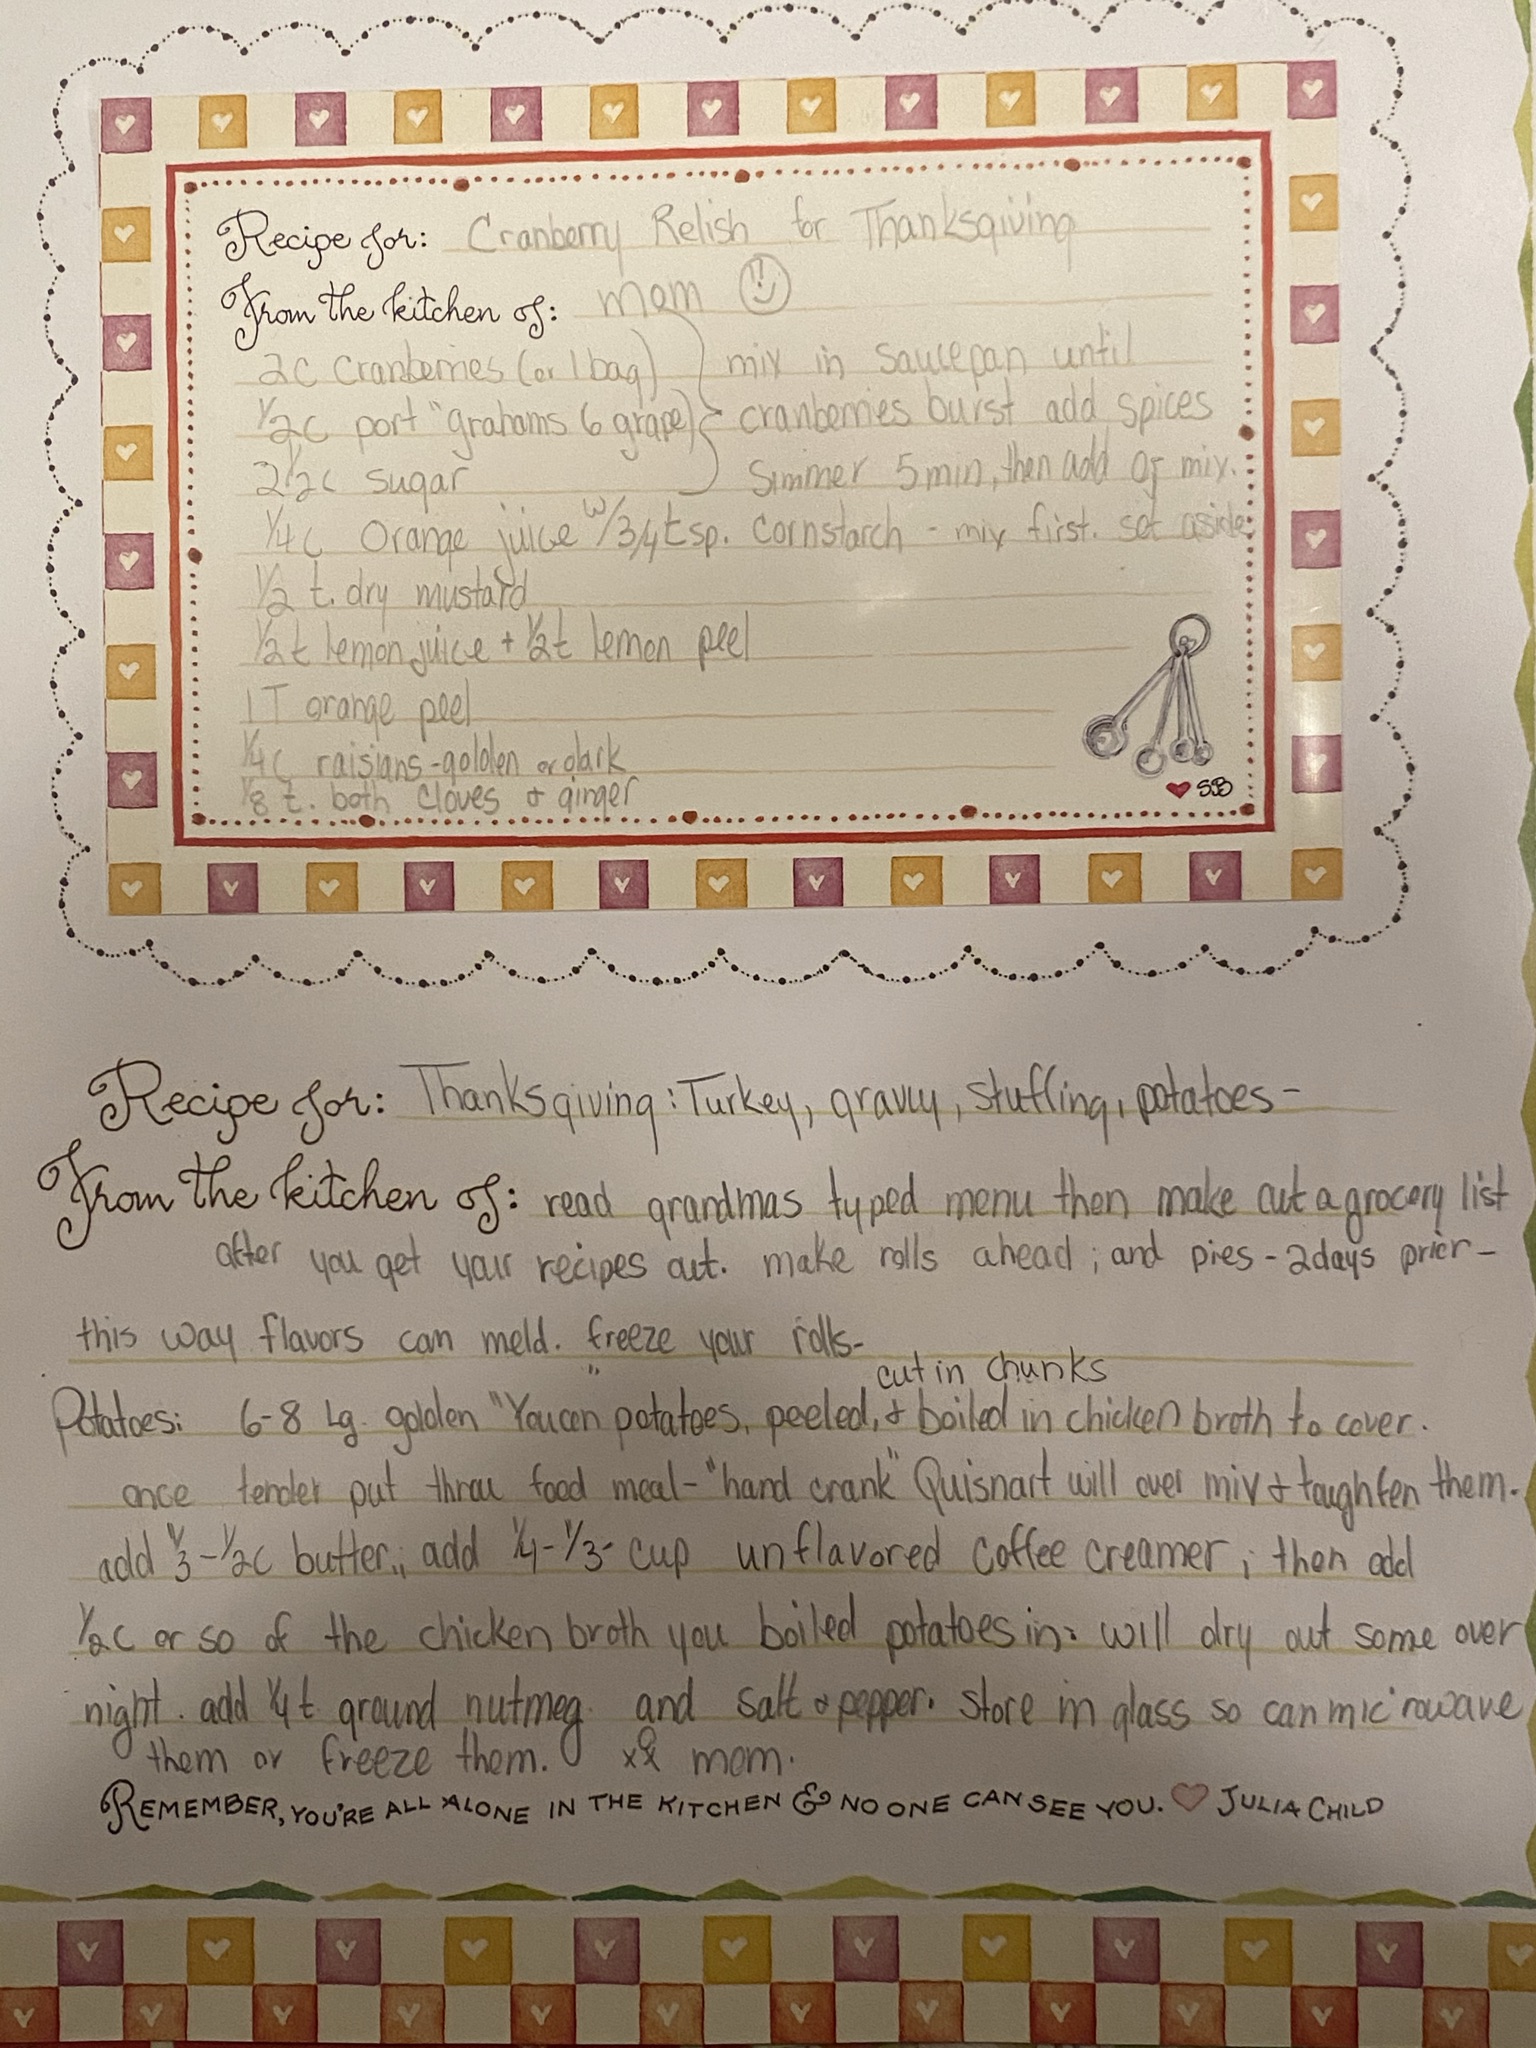 Recipe for: Cranberry Relish for Thanksgiving
From the kitchen of: mom
2c Cranberries (or 1 bag) } mix in saucepan until
1/2c port "grahams 6 grape) cranberries burst add spices
2 1/2c sugar Simmer 5 min, then add OJ mix.
1/4c Orange juice w/3/4 tsp. cornstarch - mix first. set aside.
1/2 t. dry mustard
1/2t lemon juice + 1/2t lemon peel
1 T orange peel
1/4c raisians-golden or dark
1/8 t. both cloves & ginger
SB
Recipe for: Thanksgiving: Turkey, gravy, stuffing, potatoes-
From the kitchen of: read grandmas typed menu then make out a grocery list
after you get your recipes out. make rolls ahead; and pies - 2days prior-
this way flavors can meld. freeze your rolls-
cut in chunks
Potatoes: 6-8 Lg. golden "Youcon" potatoes, peeled, & boiled in chicken broth to cover.
once tender put thrau food meal-"hand crank" Quisnart will over mix & toughten them.
add 1/3-1/2c butter,; add 1/4-1/3- cup unflavored coffee creamer; then add
1/2c or so of the chicken broth you boiled potatoes in: will dry out some over
night. add 1/4 t ground nutmeg. and salt & pepper. Store in glass so can microwave
them or freeze them. mom.
REMEMBER, YOU'RE ALL ALONE IN THE KITCHEN & NO ONE CAN SEE YOU. ♥ JULIA CHILD